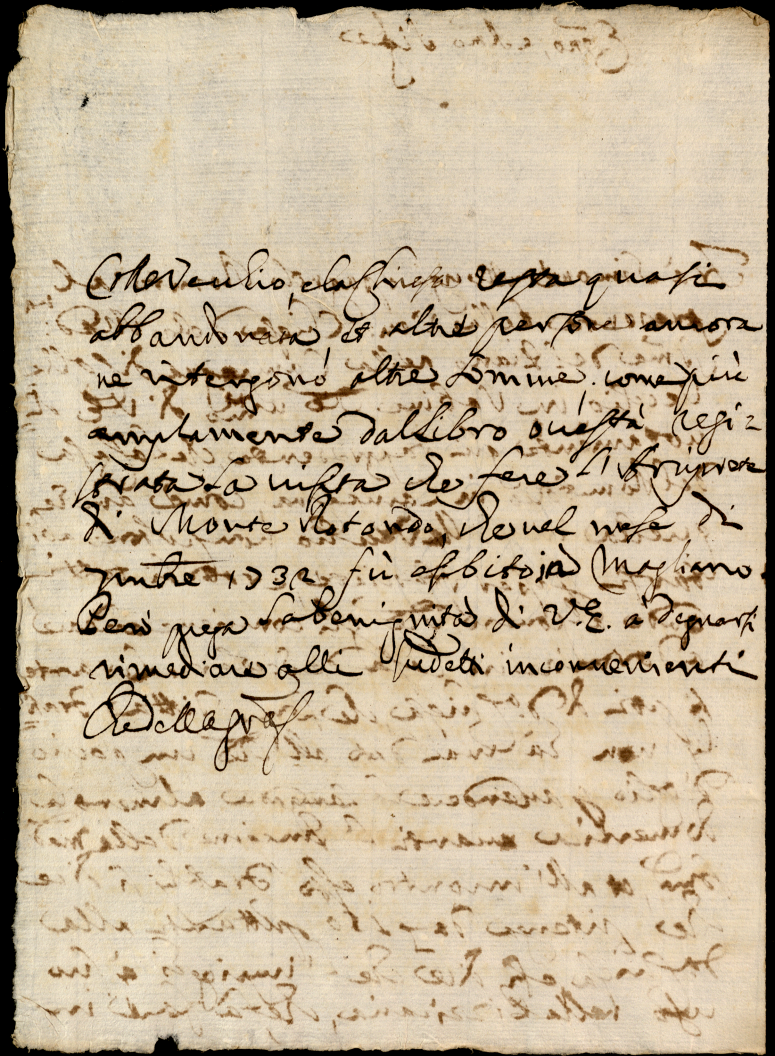 Collevecchio, e la Chiesa resta quasi
abbandonata, et altre persone ancora
ne ritengono altre somme, come più
amplamente dal Libro ove sta regi=
strata la visita che fece l'Arciprete
di Monte Rotondo, che nel mese di
7mbre 1732 fù esbito in Magliano.
Però prega la benignità di V.E. a degnarsi
rimediare alli sudetti inconvenienti
Che della gra